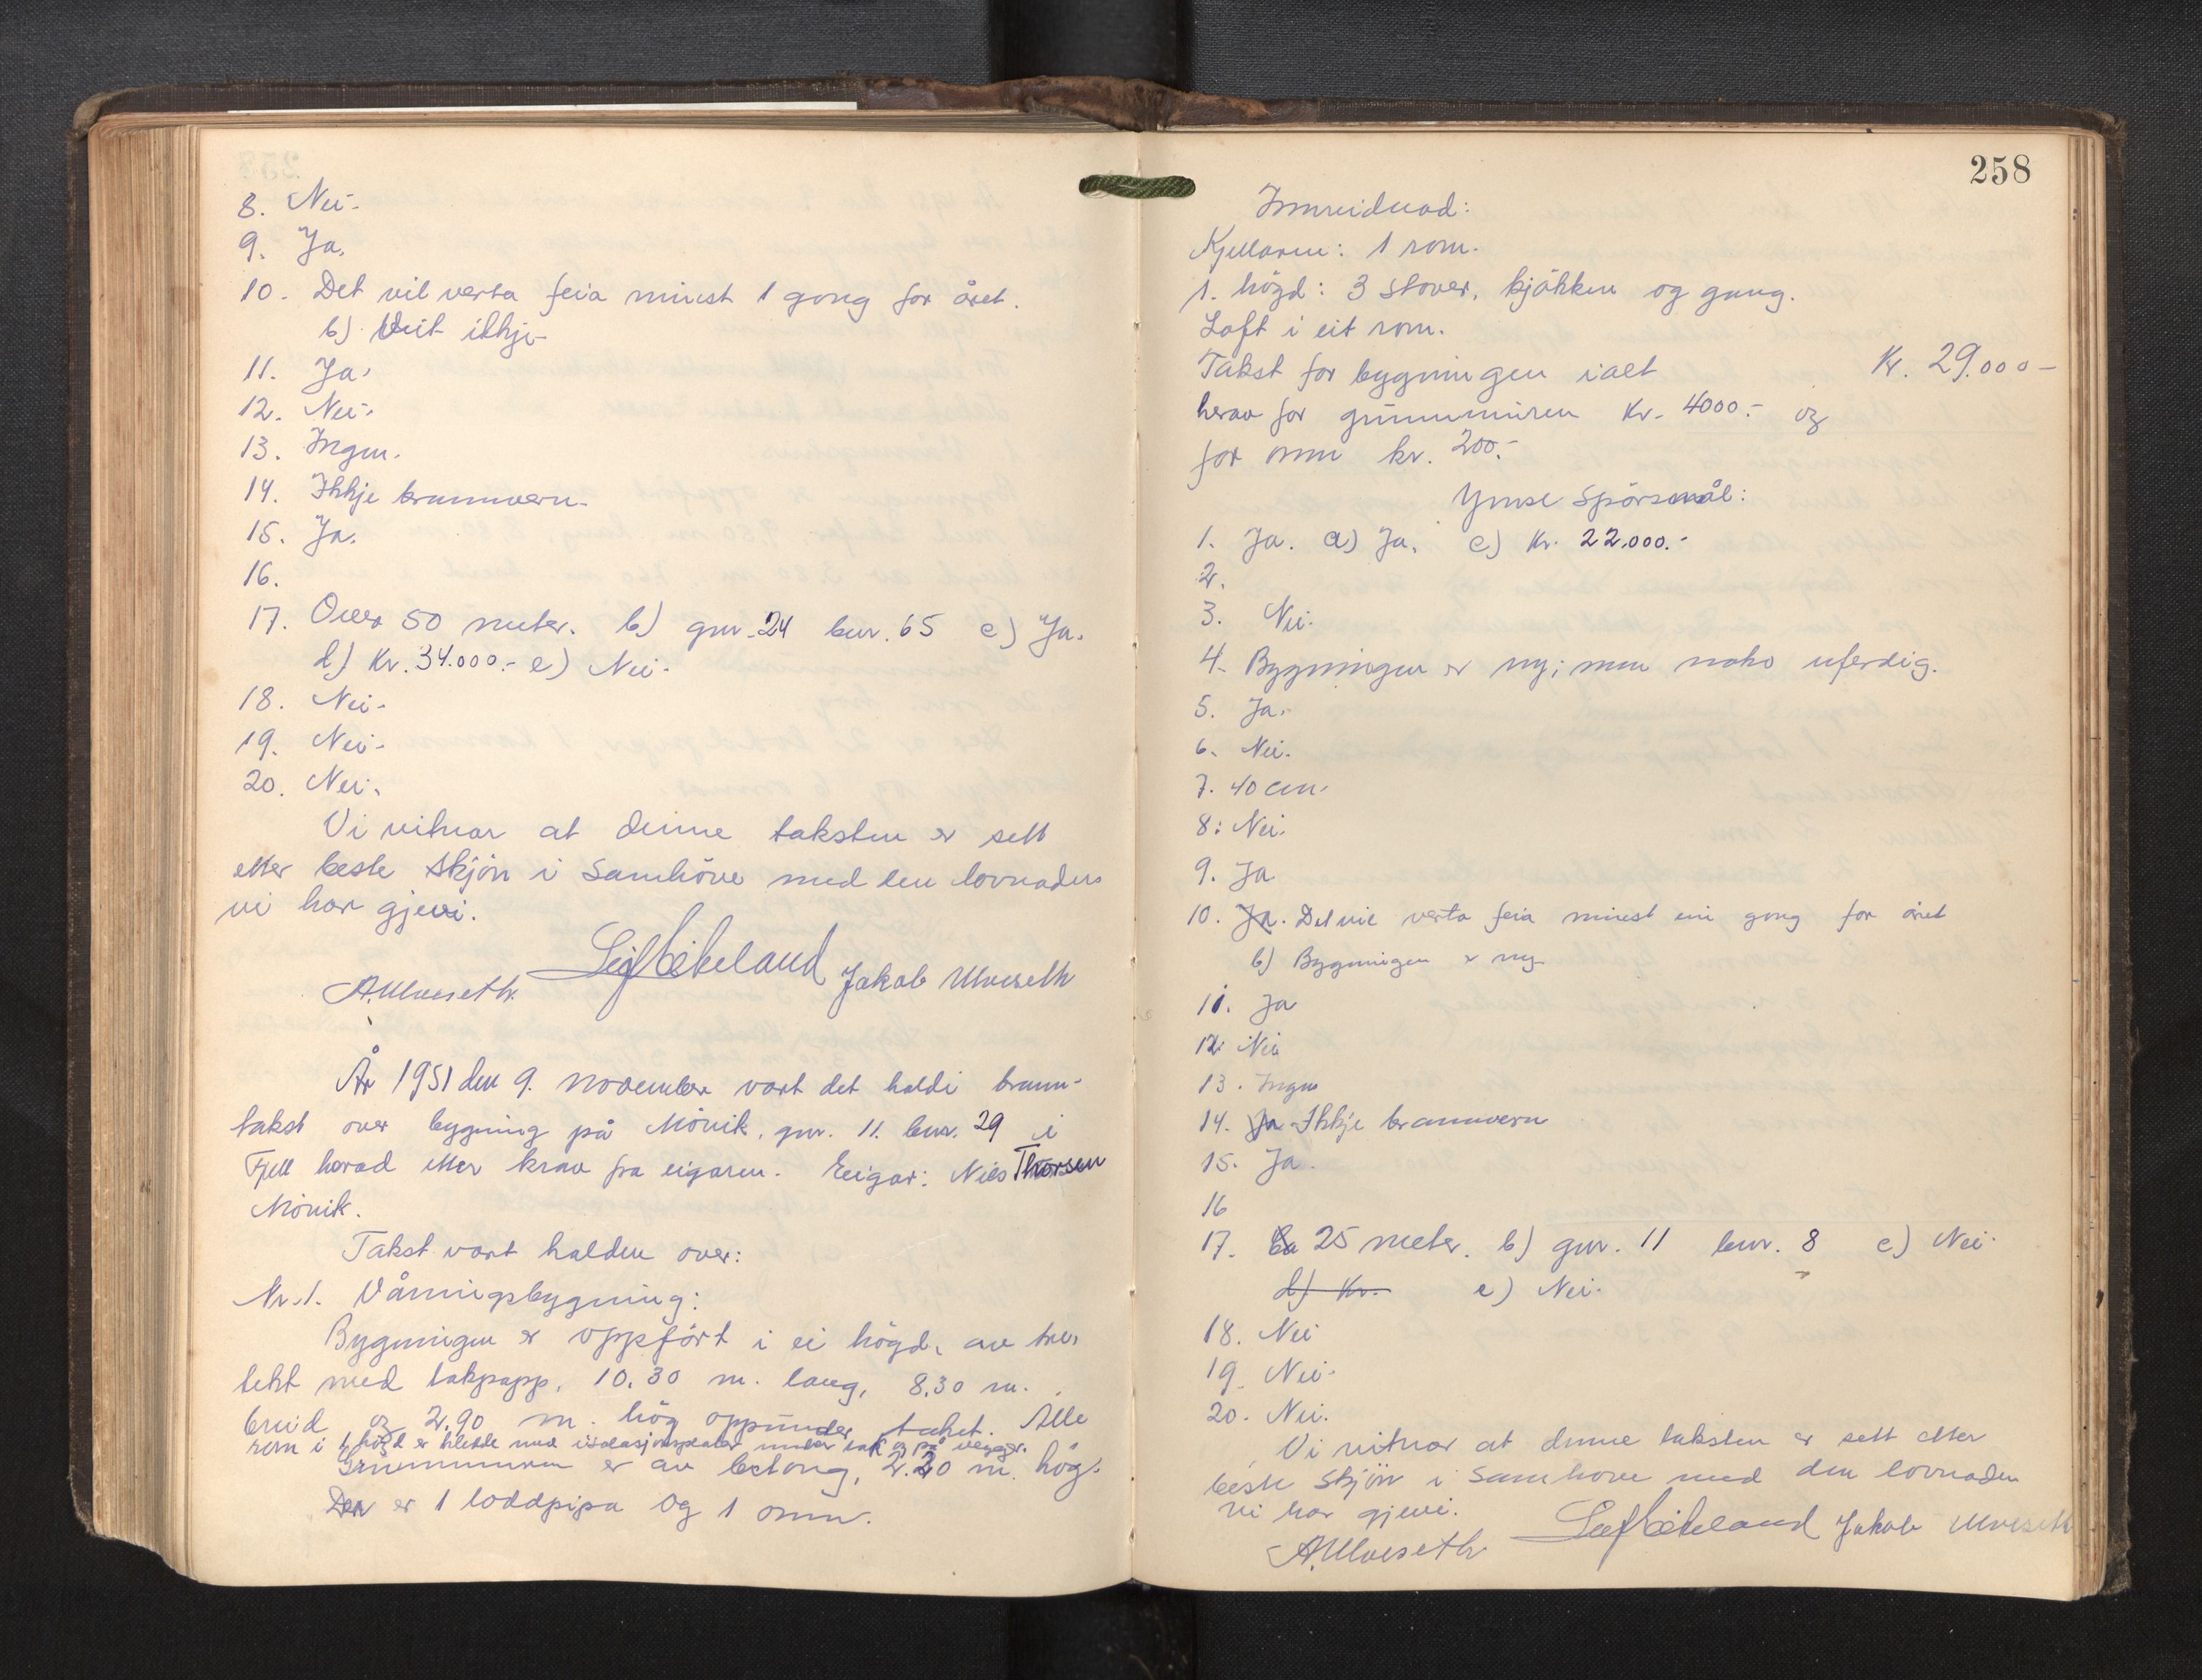 8. Nei.
9. Ja.
10. Det vil verta feia minst 1 gong for året.
b) Veit ikkje
11. Ja.
12. Nei.
13. Ingen.
14. Ikkje brannvern.
15. Ja.
16.
17. Over 50 meter. b) gnr. 24 bnr. 65 c) Ja.
d) Kr. 34.000.- e) Nei.
18. Nei.
19. Nei.
20. Nei.
Vi vitnar at denne taksten er sett
etter beste skjön i samhöve med den lovnaden
vi har gjevi.
A. Ulveseth. Leif Eikeland Jakob Ulveseth
År 1951 den 9. november vart det haldi brann-
takst over bygning på Mönik, gnr. 11. bnr. 29 i
Fjell herad etter krav fra eigaren. Eigar: Nils Thorsen
Mönik.
Takst vart halden over:
Nr. 1. Våningsbygning:
Bygningen er oppfört i ei högd, av tre,
tekt med takpapp. 10.30 m. lang, 8.30 m.
breid og 2.90 m. hög oppunder taket. Alle
rom i 1 högd er kledde med isolasjonsplater under tak og på vegger.
Grunnmuren er av betong, 2.20 m. hög.
Der er 1 loddpipa og 1 omn.
258
Innreidnad:
Kjellaren: 1 rom.
1. högd: 3 stover, kjökken og gang.
Loft i eit rom.
Takst for bygningen ialt Kr. 29.000-
herav for grunnmuren Kr. 4000.- og
for omn kr. 200.-
Ymse Spörsmål:
1. Ja. a) Ja. c) Kr. 22.000.-
2.
3. Nei.
4. Bygningen er ny; men noko uferdig.
5. Ja.
6. Nei.
7. 40 cm.
8: Nei.
9. Ja
10. Ja. Det vil verta feia minst ein gong for året
b) Bygningen er ny
11. Ja
12. Nei
13. Ingen
14. Ja Ikkje brannvern
15. Ja.
16
17. Ca 25 meter. b) gnr. 11 bnr. 8 c) Nei.
d) Kr. e) Nei.
18. Nei
19. Nei.
20. Nei.
Vi vitnar at denne taksten er sett etter
beste skjön i samhove med den lovnaden
vi har gjevi.
A. Ulveseth Leif Eikeland Jakob Ulveseth